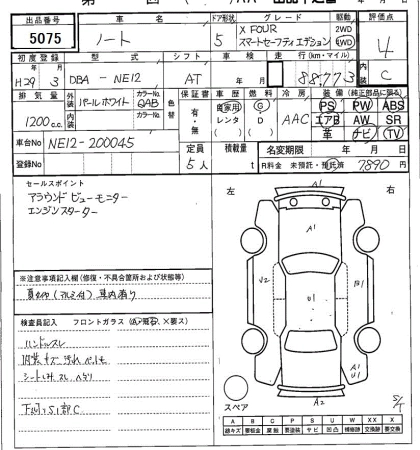 出品番号 車名 ドア形状 グレード 駆動 評価点
5075 ノート 5 X FOUR スマートセーフティエディション 2WD 4WD 4
初度登録 型式 シフト 車検 走行(km・マイル) 内装
H29年3月 DBA-NE12 AT 年 月 88,773 C
排気量 外装 カラーNo. 色替 保証書 車歴 燃料 冷房 装備(純正部品に限る)
1200cc. パールホワイト QAB 有・無 自家用 レンタ G D AAC PS PW ABS
エアB AW SR
革 ナビ TV
内装 カラーNo.
車台No NE12-200045
定員 積載量 名変期限 年 月 日
登録No 5人 t R料金 未預託・預託済 7890円
セールスポイント
アラウンドビューモニター
エンジンスターター
左 右
A1
A1
U2 U1 B1
A1
U1
A2
S/T
スペア
※注意事項記入欄(修復・不具合箇所および状態等)
車内有り
検査員記入 フロントガラス(点・飛石・×要ス)
ハンドルスレ
内装キズ汚れ
シートしみ スレ
下廻りS1部C
A B C P S U W XX X
線キズ 要板金 腐食 要塗装 サビ 凹凸 補修跡 交換跡 要交換